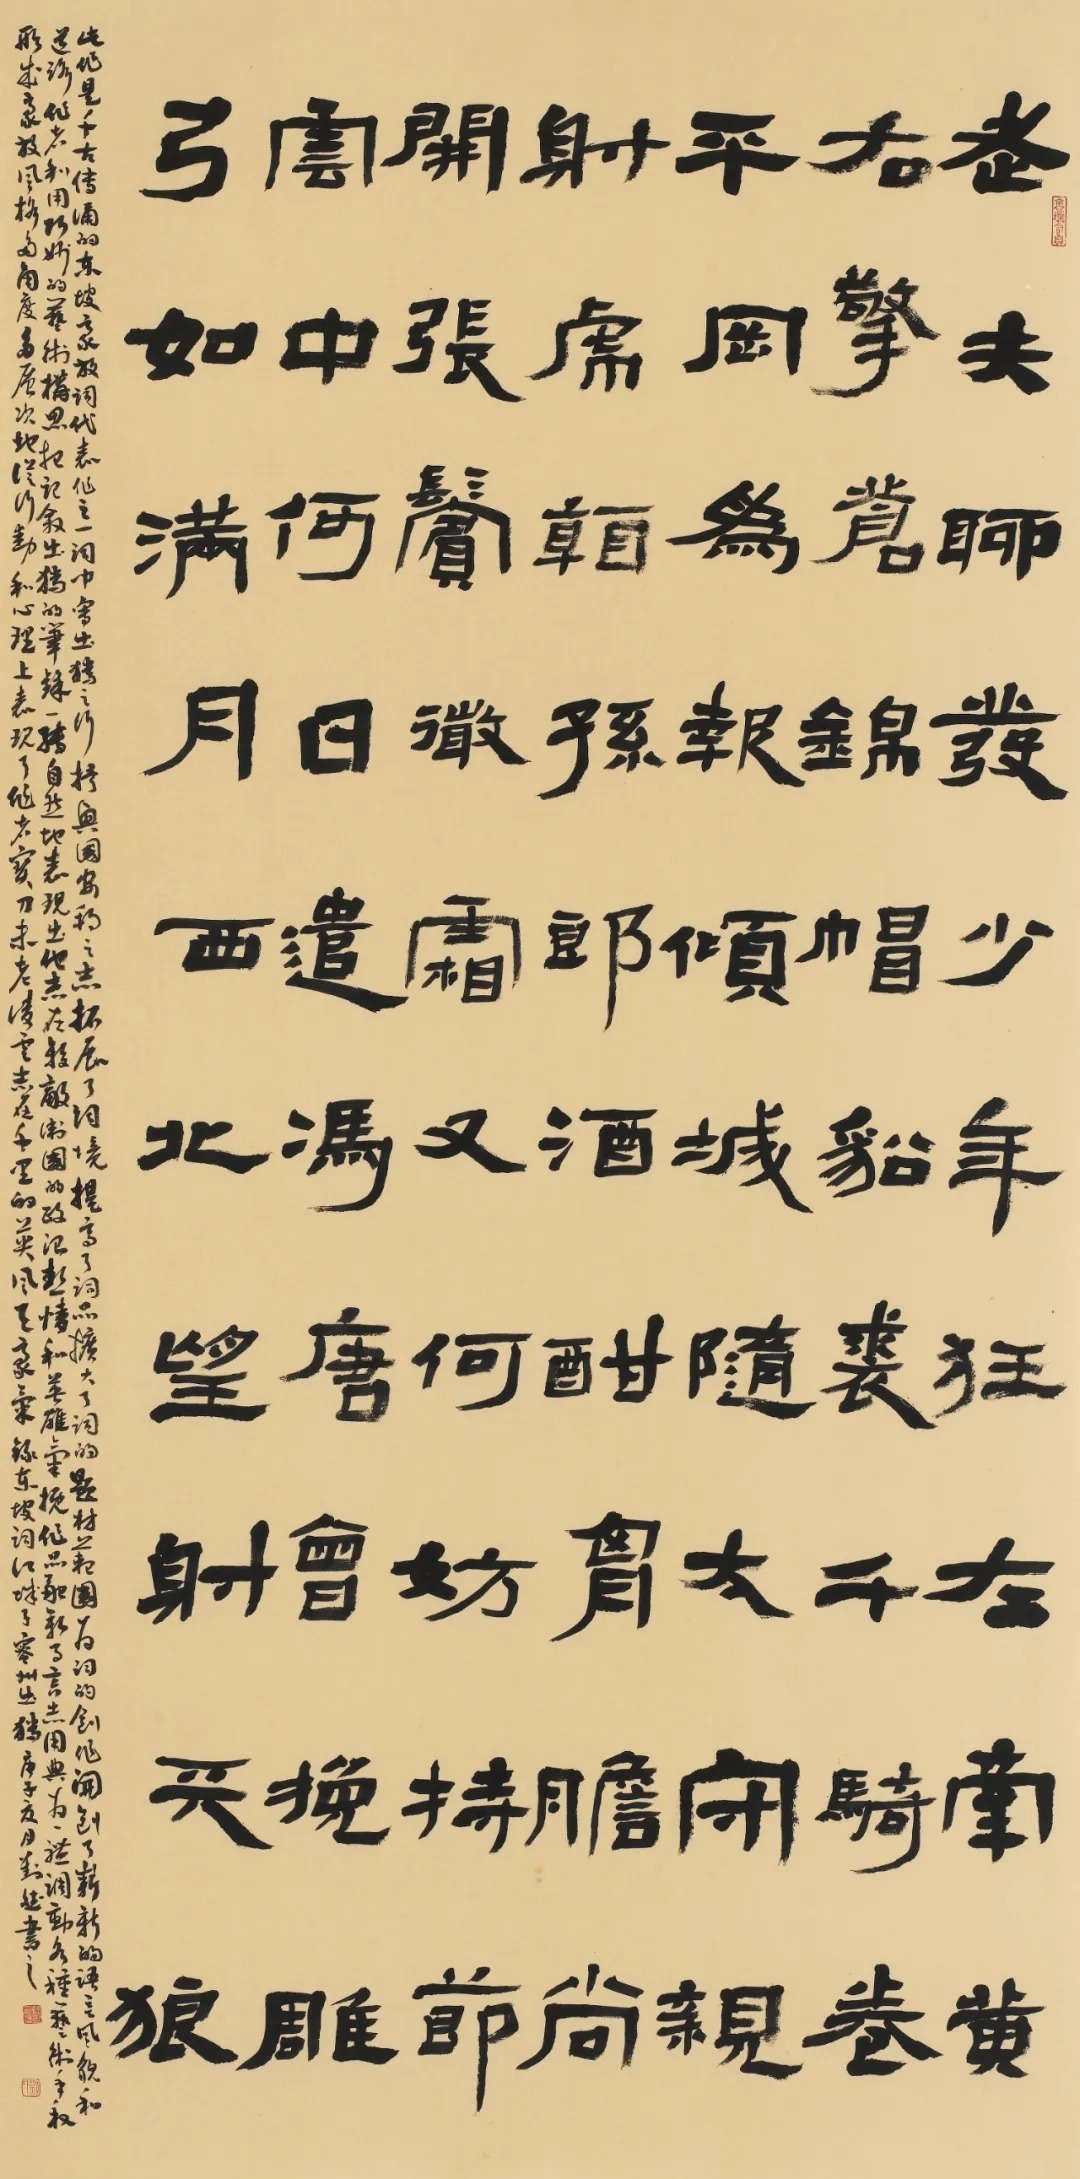 老夫聊發少年狂左牽黃
右擎蒼錦帽貂裘千騎卷
平岡為報傾城隨太守親
射虎看孫郎酒酣胷膽尚
開張鬢微霜又何妨持節
雲中何日遣馮唐會挽雕
弓如滿月西北望射天狼
此作是千古传诵的东坡豪放词代表作之一词中写出獵之行抒興國安邦之志拓展了词境提高了词品擴大了词的题材范圍为词的創作開創了嶄新的语言风貌和
道路作者利用巧妙的藝術構思把記敘出獵的筆鋒一轉自然地表现出他志在殺敵衛國的政治熱情和英雄氣概作品融敘事言志用典为一體調動各種藝術手段
形成豪放风格多角度多层次地從行動和心理上表现了作者宝刀未老凌雲志在千里的英风豪氣錄东坡词江城子密州出獵庚子夏月書之